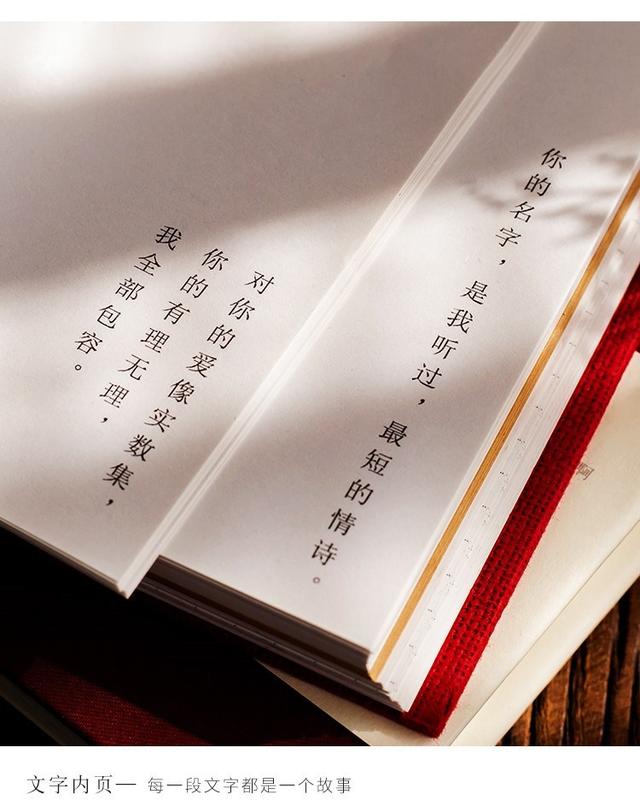 你的名字，是我听过，最短的情诗。
对你的爱像实数集，
你的有理无理，
我全部包容。
文字内页— 每一段文字都是一个故事